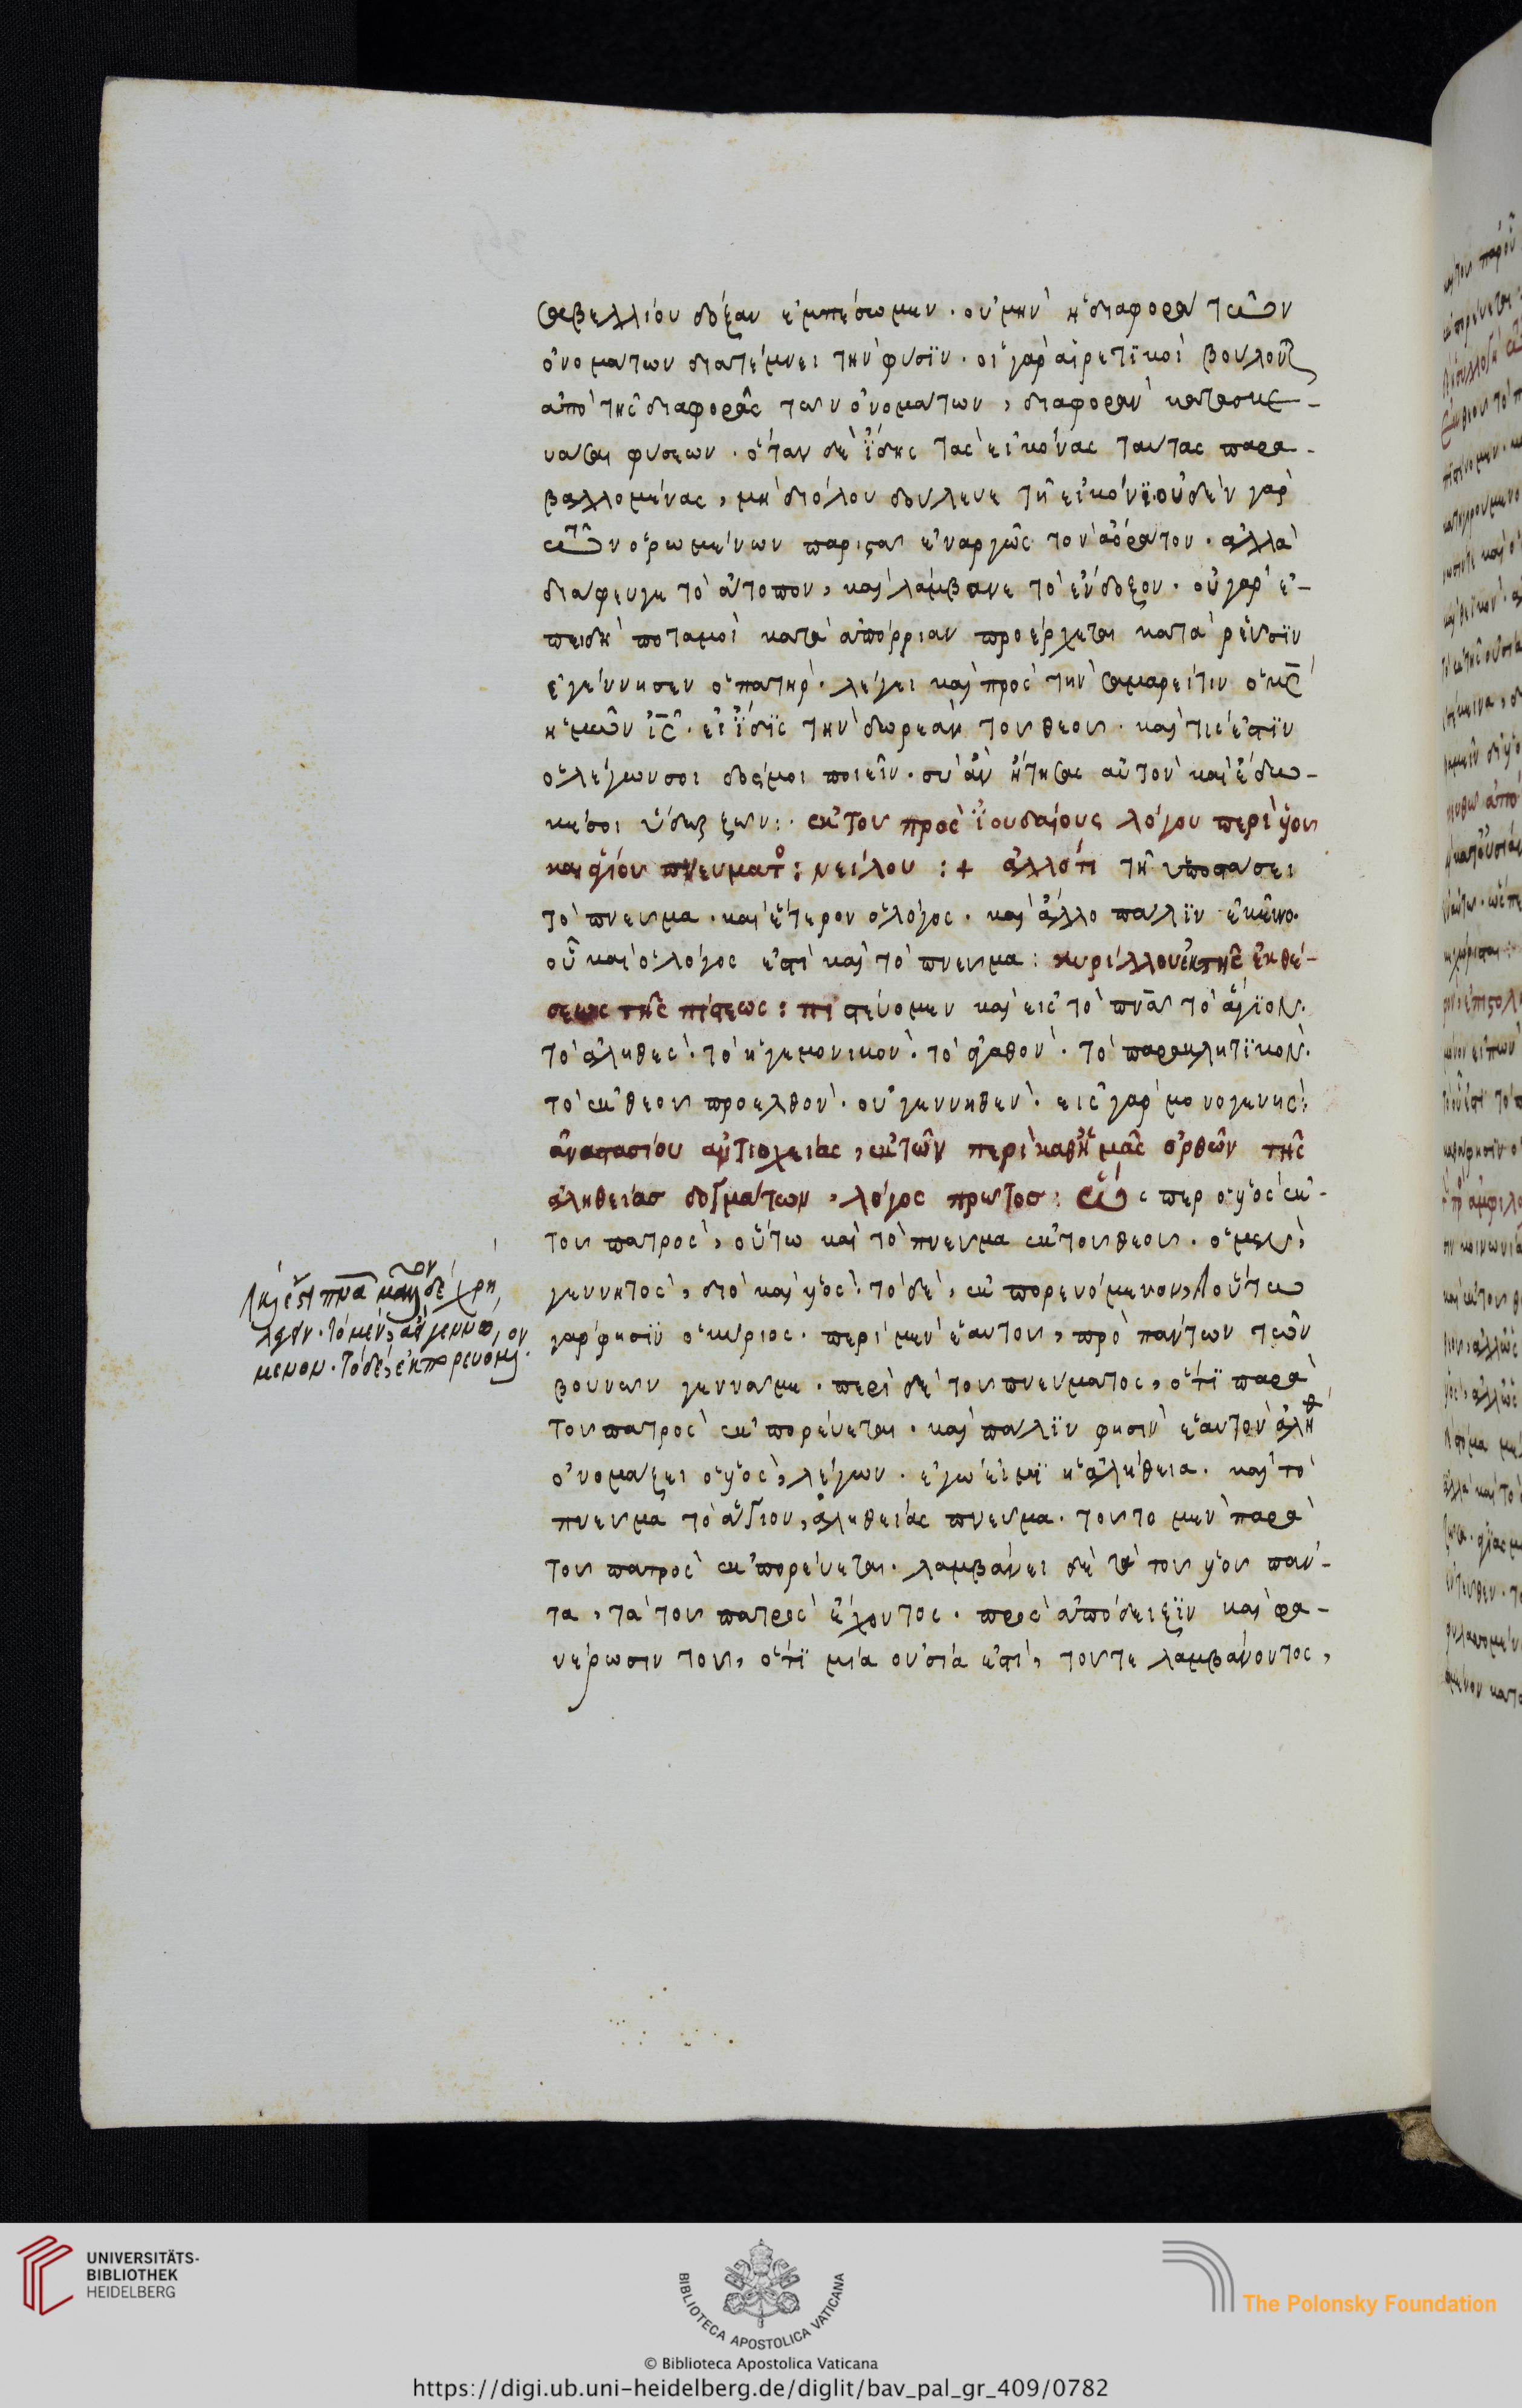 σαβελλίου δόξαν ἐμπέσωμεν. οὐ μὴν ἡ διαφορὰ τῶν
ὀνομάτων διατέμνει τὴν φύσϊν. οἱ γὰρ αἱρετϊκοὶ βουλοντ
ἀπὸ τῆς διαφορᾶς τῶν ὀνομάτων, διαφορὰν κατασκε-
υάσαι φύσεων. ὅταν δὲ ἴδης τὰς εἰκόνας ταύτας παρα-
βαλλομένας, μὴ διόλου δούλευε τῆ εἰκόνϊ. οὐδὲν γὰρ
τῶν ὁρωμένων παριστᾶ ἐναργῶς τὸν ἀόρατον. ἀλλὰ
διάφευγε τὸ ἄτοπον, καὶ λάμβανε τὸ ἔνδοξον. οὐ γὰρ ἐ-
πειδὴ ποταμοὶ κατὰ ἀπόρριαν προέρχεται κατὰ ῥεῦσϊν
ἐγέννησεν ὁ πατήρ. λέγει καὶ πρὸς τὴν σαμαρείτιν ὁ κς
ἡμῶν ις. εἰ ἴδϊς τὴν δωρεὰν τοῦ θεοῦ. καὶ τίς ἐστϊν
ὁ λέγων σοι δός μοι ποιεῖν. σὺ ἂν ἤτησας αὐτὸν καὶ ἔδω-
κέ σοι ὕδωρ ζῶν: ἐκ τοῦ πρὸς ϊουδαίους λόγου περὶ ὑοῦ
καὶ ἁγίου πνευματος: νείλου: + ἄλλό τι τῆ ὑποστάσει
τὸ πνεῦμα. καὶ ἕτερον ὁ λόγος. καὶ ἄλλο πάλϊν ἐκεῖνο.
οὗ καὶ ὁ λόγος ἐστὶ καὶ τὸ πνεῦμα: κυρίλλου ἐκ τῆς ἐκθέ-
σεως τῆς πίστεως: πιστεύομεν καὶ εἰς τὸ πνα τὸ ἅγϊον.
τὸ ἀληθὲς. τὸ ἡγεμονικὸν. τὸ ἀγαθὸν. τὸ παρακλητϊκὸν.
τὸ ἐκ θεοῦ προελθὸν. οὐ γεννηθὲν. εἷς γὰρ μονογενὴς:
ἀναστασίου ἀντιοχείας, ἐκ τῶν περὶ καθ' ἡμᾶς ὀρθῶν τῆς
ἀληθείασ δογμάτων, λόγος πρῶτοσ: ὥσπερ ὁ ὑὸς ἐκ
τοῦ πατρὸς, οὕτω καὶ τὸ πνεῦμα ἐκ τοῦ θεοῦ. ὁ μὲν,
γεννητὸς, διὸ καὶ ὑὸς. τὸ δὲ, ἐκπορευόμενον, οὕτω
γάρ φησϊν ὁ κύριος. περὶ μὲν ἑαυτοῦ, πρὸ πάντων τῶν
βουνῶν γεννᾶ με. περὶ δὲ τοῦ πνεύματος, ὅτϊ παρὰ
τοῦ πατρὸς ἐκπορεύεται. καὶ πάλϊν φησὶν ἑαυτὸν ἀληθ
ὀνομάζει ὁ ὑὸς, λέγων. ἐγώ εἰμϊ ἡ ἀλήθεια. καὶ τὸ
πνεῦμα τὸ ἅγιον, ἀληθείας πνεῦμα. τοῦτο μὲν παρὰ
τοῦ πατρὸς ἐκπορεύεται. λαμβάνει δὲ τὰ τοῦ ὑοῦ πάν-
τα, τὰ τοῦ πατρὸς ἔχοντος. πρὸς ἀπόδειξϊν καὶ φα-
νέρωσιν τοῦ, ὅτϊ μία οὐσία ἐστὶ, τοῦ τε λαμβάνοντος,
UNIVERSITÄTS-
BIBLIOTHEK
HEIDELBERG
BIBLIOTECA APOSTOLICA VATICANA
The Polonsky Foundation
© Biblioteca Apostolica Vaticana
https://digi.ub.uni-heidelberg.de/diglit/bav_pal_gr_409/0782